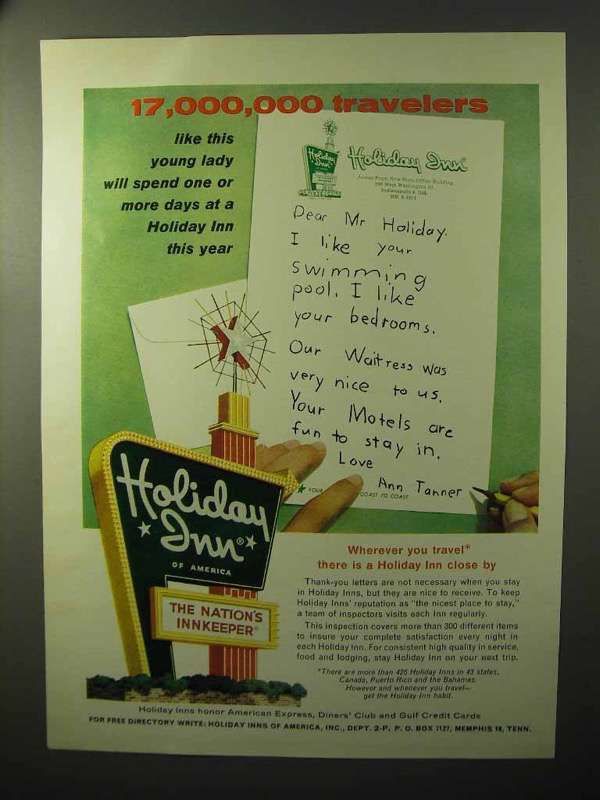 17,000,000 travelers
like this
young lady
will spend one or
more days at a
Holiday Inn
this year
Holiday Inn
Holiday Inn
Across From New State Office Building
Indianapolis 4, Ind.
Dear Mr Holiday.
I like your
swimming
pool. I like
your bedrooms.
Our Waitress was
very nice to us.
Your Motels are
fun to stay in.
Love
Ann Tanner
YOUR
COAST TO COAST
Holiday
Inn®
OF AMERICA
THE NATION'S
INNKEEPER®
Wherever you travel*
there is a Holiday Inn close by
Thank-you letters are not necessary when you stay
in Holiday Inns, but they are nice to receive. To keep
Holiday Inns' reputation as "the nicest place to stay,"
a team of inspectors visits each Inn regularly.
This inspection covers more than 300 different items
to insure your complete satisfaction every night in
each Holiday Inn. For consistent high quality in service,
food and lodging, stay Holiday Inn on your next trip.
*There are more than 425 Holiday Inns in 43 states,
Canada, Puerto Rico and the Bahamas.
However and whenever you travel—
get the Holiday Inn habit.
Holiday Inns honor American Express, Diners' Club and Gulf Credit Cards
FOR FREE DIRECTORY WRITE: HOLIDAY INNS OF AMERICA, INC., DEPT. 2-P, P. O. BOX 7127, MEMPHIS 18, TENN.